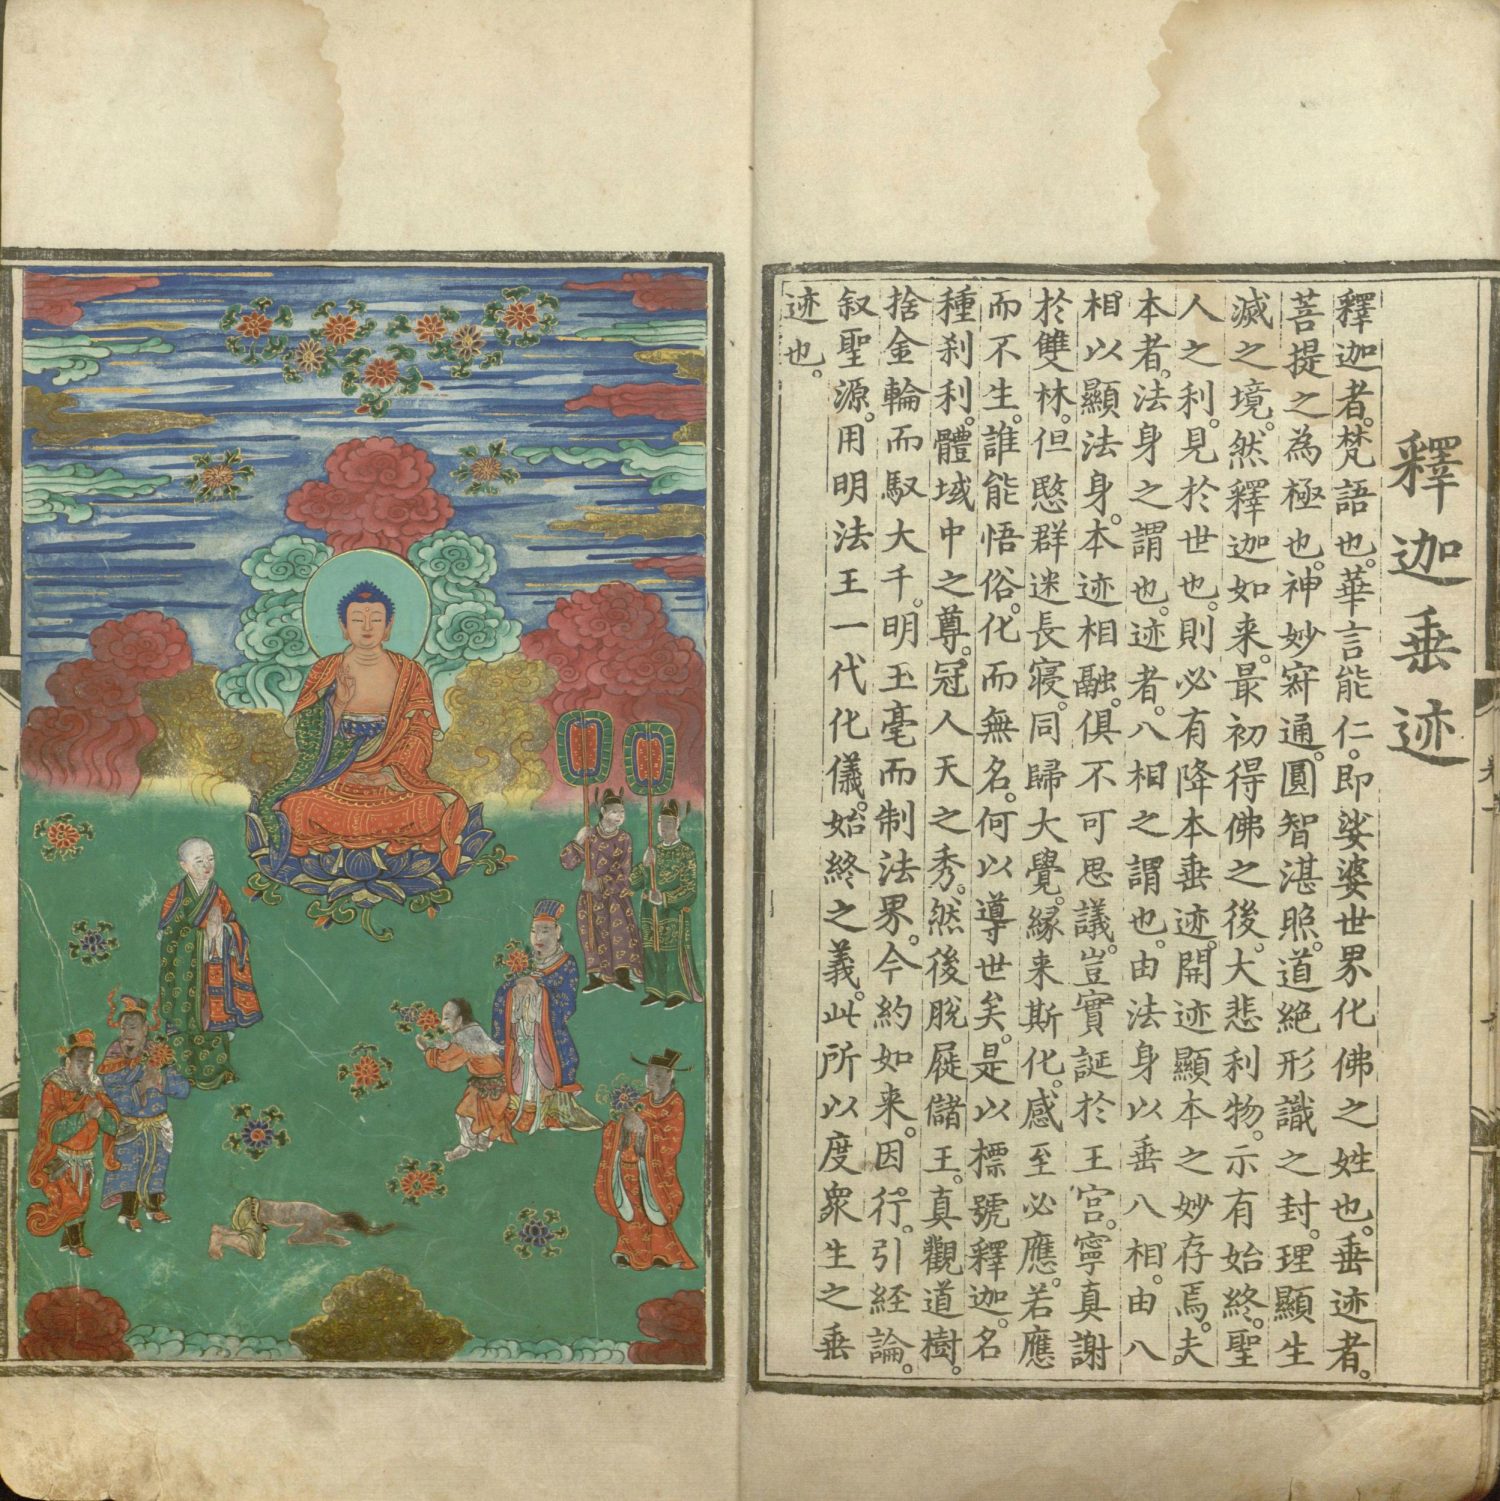 釋迦垂迹
釋迦者。梵語也。華言能仁。即娑婆世界化佛之姓也。垂迹者。
菩提之為極也。神妙寂通。圓智湛照。道絕形識之封。理顯生
滅之境。然釋迦如来。最初得佛之後。大悲利物。示有始終。聖
人之利。見於世也。則必有降本垂迹。開迹顯本之妙存焉。夫
本者。法身之謂也。迹者。八相之謂也。由法身以垂八相。由八
相以顯法身。本迹相融。俱不可思議。豈實誕於王宮。寧真謝
於雙林。但愍群迷長寢。同歸大覺。緣来斯化。感至必應。若應
而不生。誰能悟俗。化而無名。何以導世矣。是以標號釋迦。名
種刹利。體域中之尊。冠人天之秀。然後脫屣儲王。真觀道樹。
捨金輪而馭大千。明玉毫而制法界。今約如来。因行。引経論。
叙聖源。用明法王一代化儀。始終之義。此所以度衆生之垂
迹也。